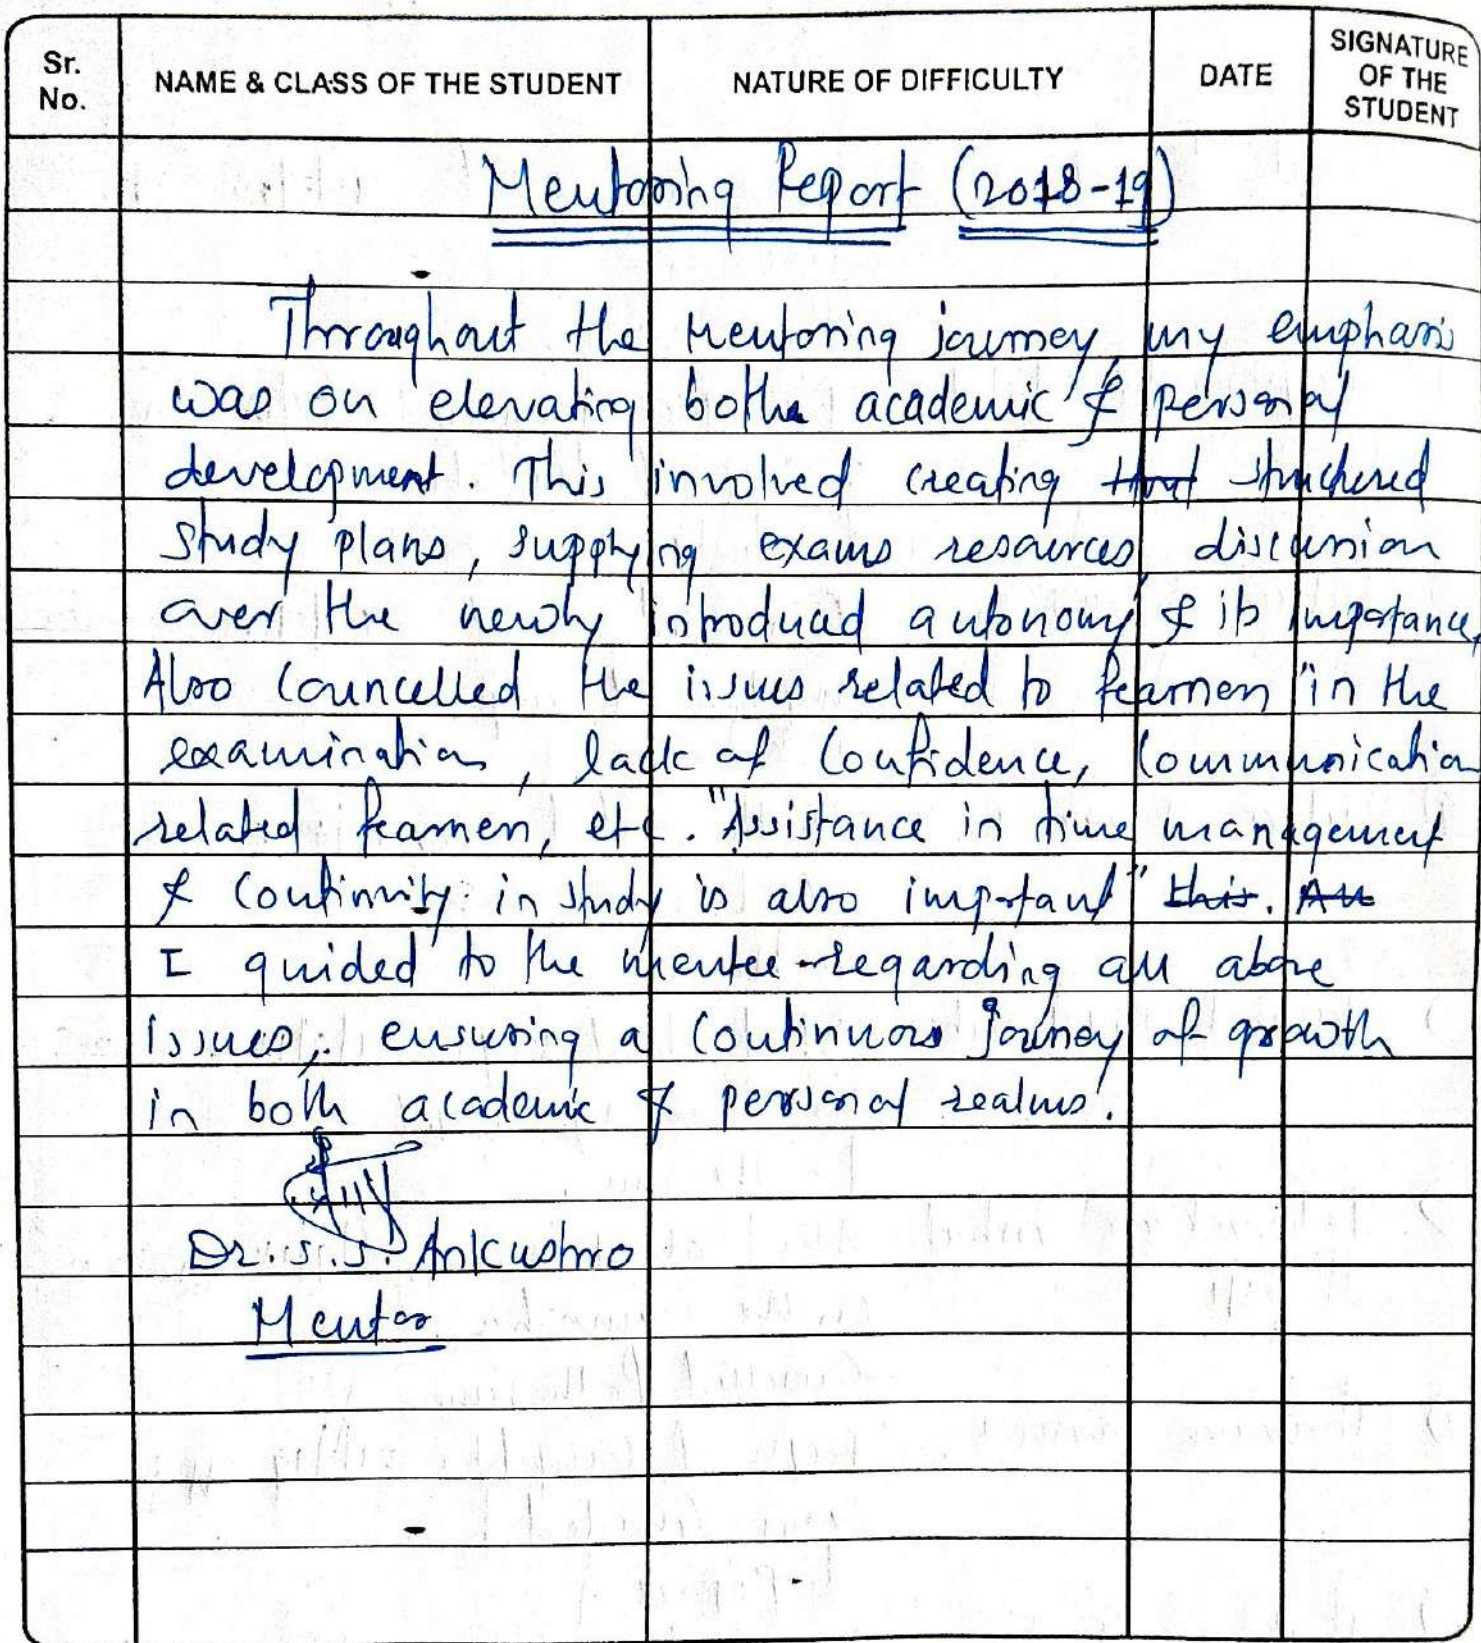 Sr. No.
NAME & CLASS OF THE STUDENT
NATURE OF DIFFICULTY
DATE
SIGNATURE OF THE STUDENT
Mentoring Report (2018-19)
Throughout the mentoring journey, my emphasis
was on elevating both academic & personal
development. This involved creating structured
study plans, supplying exams resources, discussion
over the newly introduced autonomy & its importance,
Also councelled the issues related to fearnen in the
examination, lack of confidence, communication
related fearnen, etc. "Assistance in time management
& continuity in study is also important" this. All
I guided to the mentee regarding all above
issues, ensuring a continuous journey of growth
in both academic & personal realms.
Dr. S.S. Ankushrao
Mentor